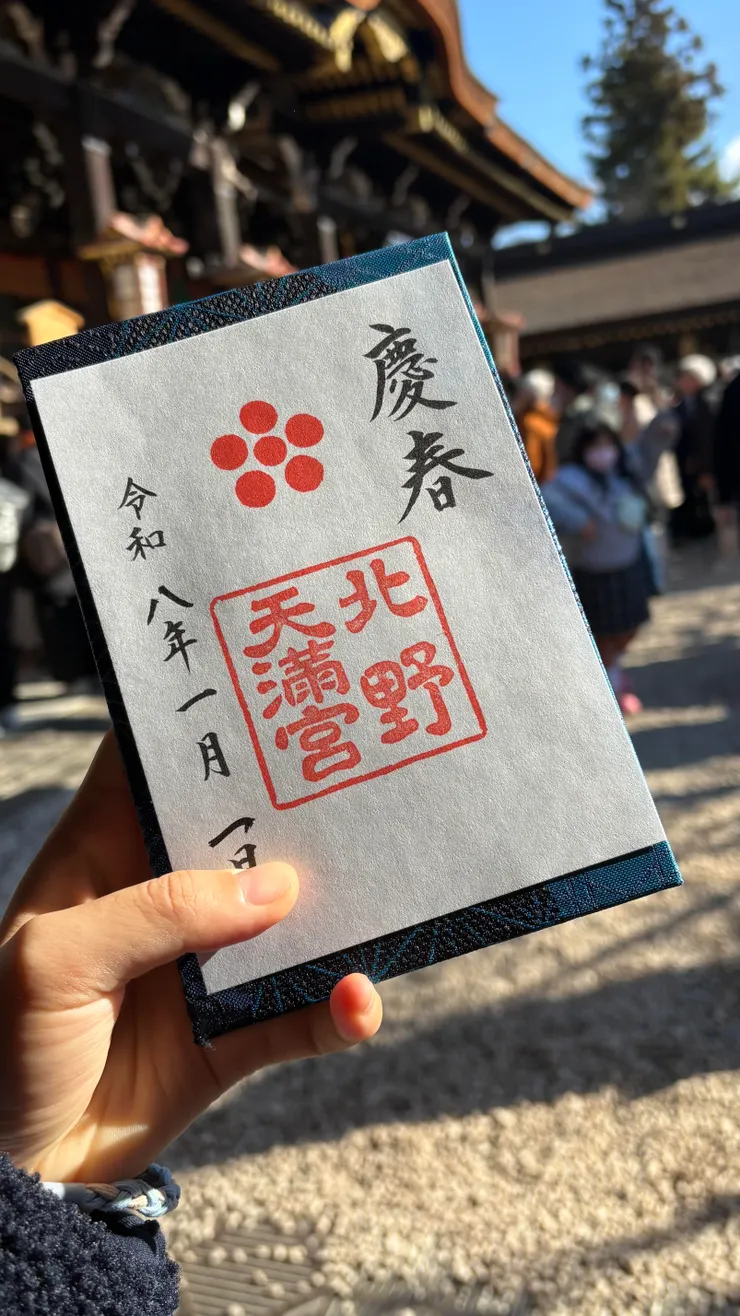 慶春
北野
天満宮
令和八年一月一日